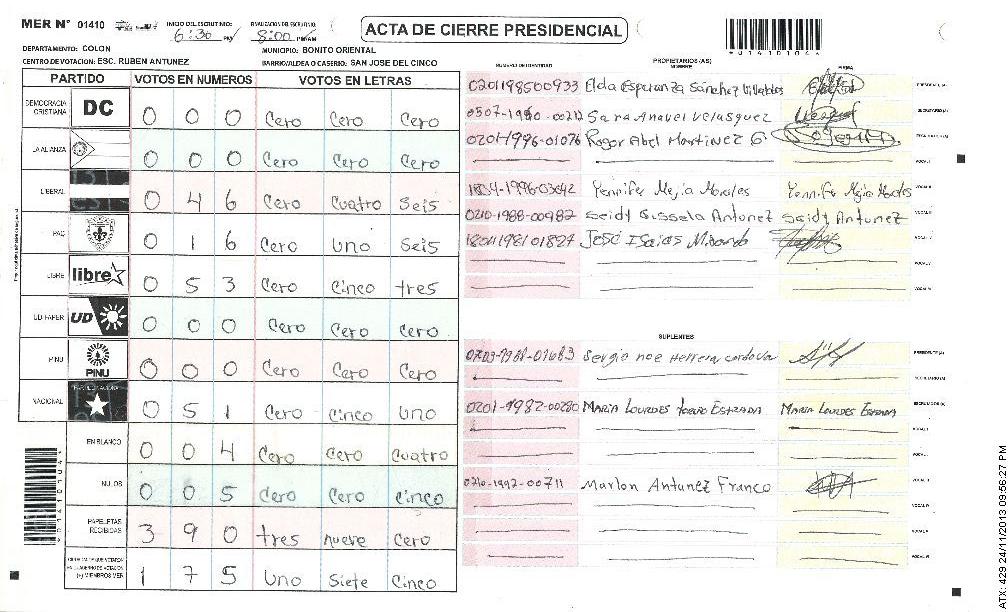 MER N° 01410
INICIO DEL ESCRUTINIO:
6:30 PM
FINALIZACION DEL ESCRUTINIO:
8:00 PM/AM
ACTA DE CIERRE PRESIDENCIAL
DEPARTAMENTO: COLON
MUNICIPIO: BONITO ORIENTAL
CENTRO DE VOTACION: ESC. RUBEN ANTUNEZ
BARRIO/ALDEA O CASERIO: SAN JOSE DEL CINCO
PARTIDO VOTOS EN NUMEROS VOTOS EN LETRAS
DEMOCRACIA CRISTIANA DC 0 0 0 Cero Cero Cero
LA ALIANZA 0 0 0 Cero Cero Cero
LIBERAL 0 4 6 Cero Cuatro Seis
PAC 0 1 6 Cero Uno Seis
LIBRE libre 0 5 3 Cero Cinco tres
UD FAPER UD 0 0 0 Cero Cero Cero
PINU PINU 0 0 0 Cero Cero Cero
NACIONAL 0 5 1 Cero Cinco Uno
EN BLANCO 0 0 4 Cero Cero Cuatro
NULOS 0 0 5 Cero Cero Cinco
PAPELETAS RECIBIDAS 3 9 0 tres nueve Cero
(+) MIEMBROS MER 1 7 5 Uno Siete Cinco
PROPIETARIOS (AS)
NUMERO DE IDENTIDAD NOMBRE FIRMA
020198500933 Elda Esperanza Sánchez PRESIDENTE (A)
0507-1990-00212 Sara Anavel Velasquez SECRETARIO (A)
0201-1996-01076 Roger Abel Martinez G.
VOCAL I
1804-1996-03642 Yennifer Mejia Morales Yennifer Mejia Morales VOCAL II
0210-1988-00982 Seidy Gissela Antunez Seidy Antunez
1804198101827 José Isaias Mirando
SUPLENTES
Sergio noe Herrera cordova PRESIDENTE (A)
SECRETARIO (A)
0201-1982-00280 MARIA LOURDES ESTRADA MARIA LOURDES ESTRADA ESCRUTADOR (A)
VOCAL I
0210-1992-00711 Marlon Antunez Franco
*01410104*
ATX: 429 24/11/2013 09:56:27 PM